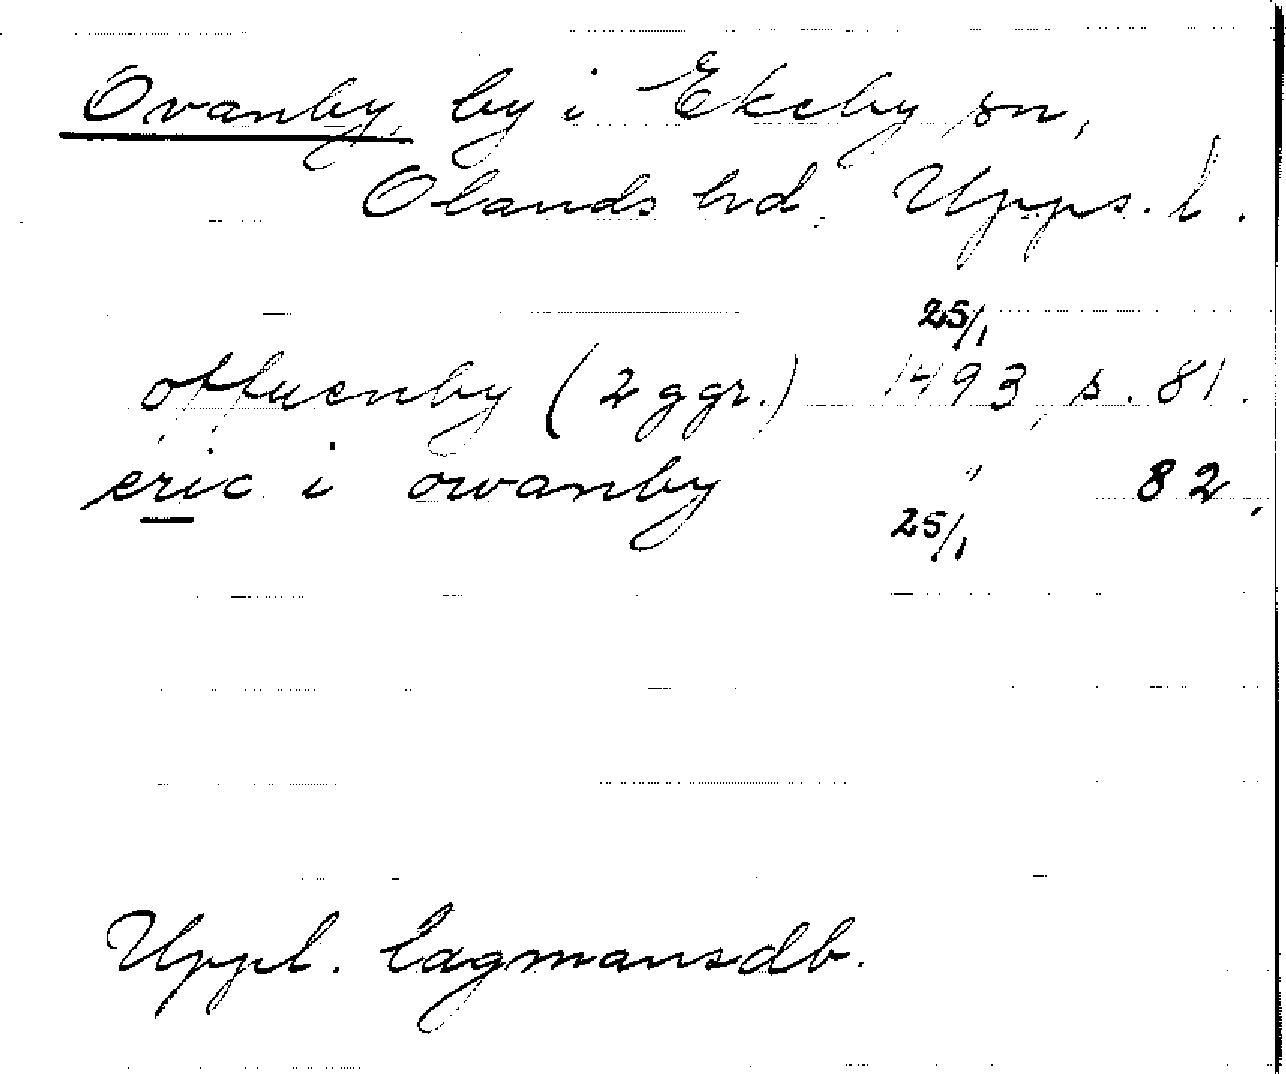 Ovanby, by i Ekeby sn,
Olands hd. Upps. l.
25/1
offuenby (2 ggr.) 1493, s. 81.
eric i owanby " 82,
25/1
Uppl. Lagmansdb.